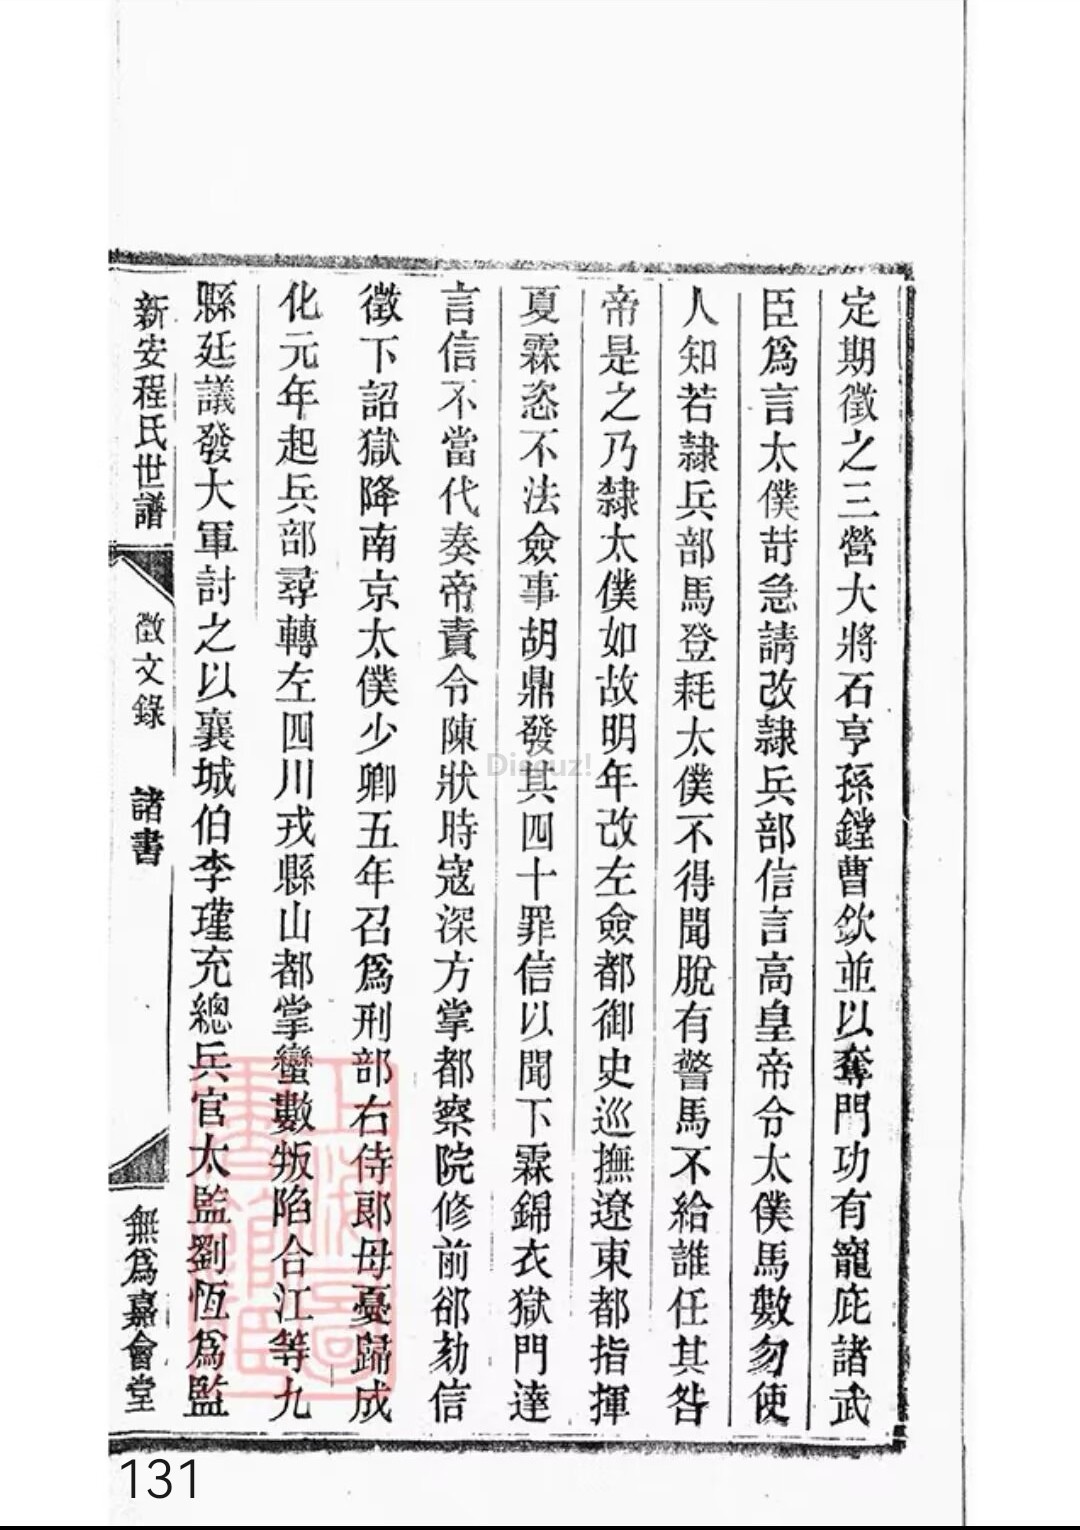 定期徵之三營大將石亨孫鏜曹欽並以奪門功有寵庇諸武
臣爲言太僕苛急請改隷兵部信言高皇帝令太僕馬數勿使
人知若隷兵部馬登耗太僕不得聞脫有警馬不給誰任其咎
帝是之乃隷太僕如故明年改左僉都御史巡撫遼東都指揮
夏霖恣不法僉事胡鼎發其四十罪信以聞下霖錦衣獄門達
言信不當代奏帝責令陳狀時寇深方掌都察院修前郤劾信
徵下詔獄降南京太僕少卿五年召爲刑部右侍郞母憂歸成
化元年起兵部尋轉左四川戎縣山都掌蠻數叛陷合江等九
縣廷議發大軍討之以襄城伯李瑾充總兵官太監劉恆爲監
新安程氏世譜 徵文錄 諸書 無爲嘉會堂
上海圖
書館藏
Discuz!
131